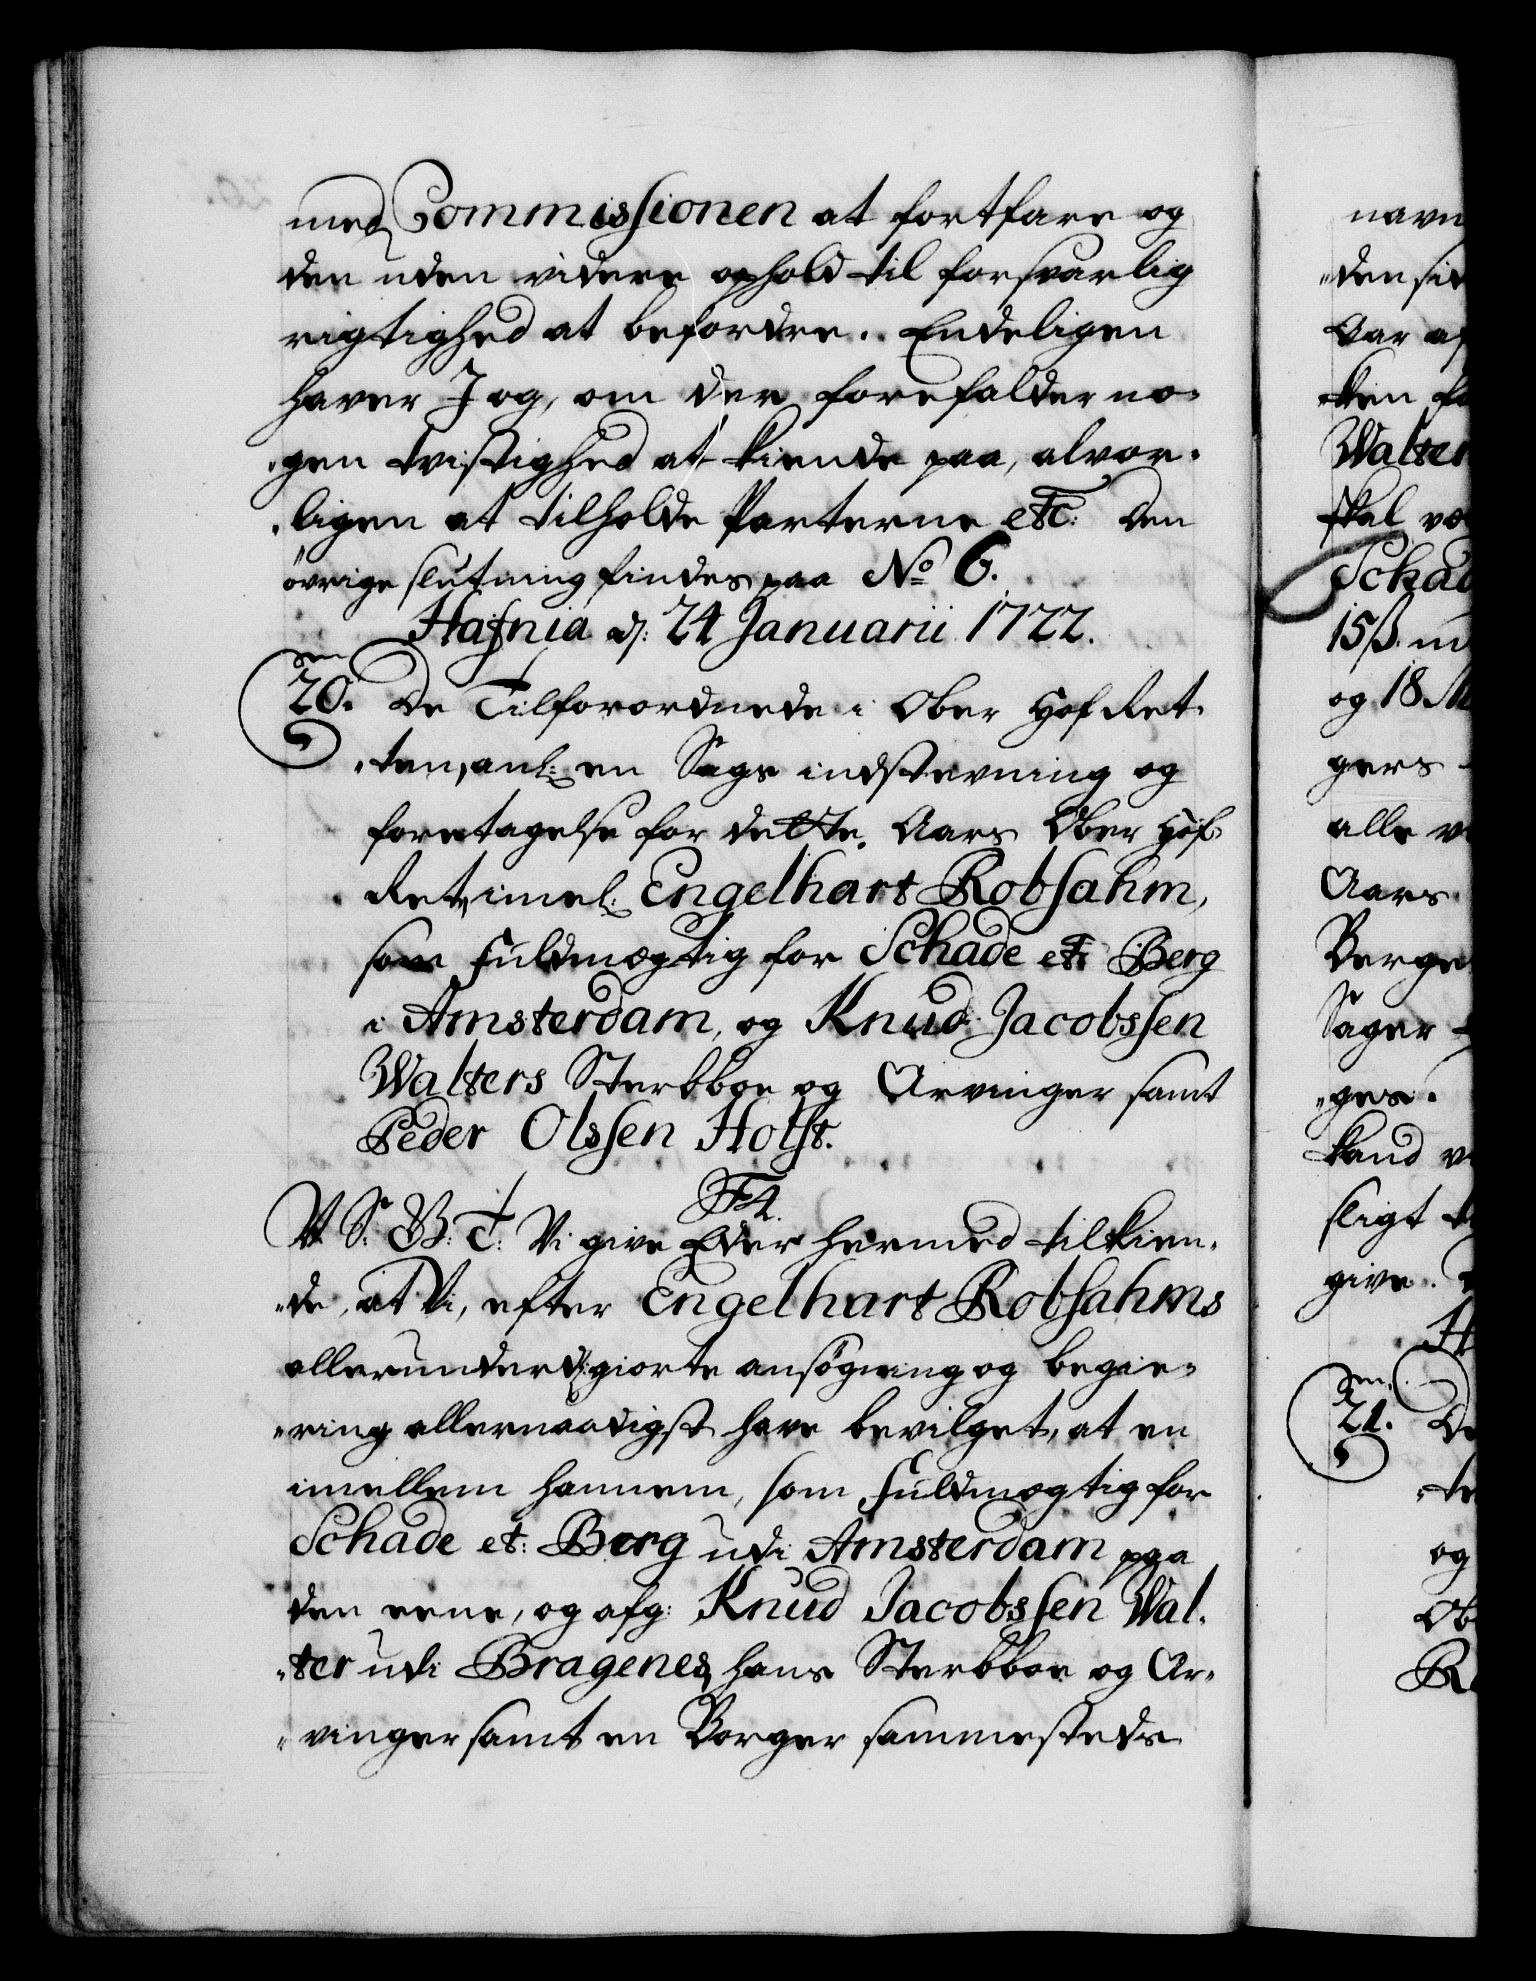 med Commissionen at fortfare og
den uden videre ophold til forsvarlig
rigtighed at befordre. Endeligen
haver J og, om der forefalder no-
gen tvistighed at kiende paa, alvor-
ligen at tilholde Parterne etc: Den
övrige slutning findes paa No 6.
Hafnia d: 24 Januarii 1722.
20. De Tilforordnede i Ober Hof Ret-
ten, anl: en Sags indstevning og
foretagelse for dette Aars Ober Hof-
Ret, imel: Engelhart Robsahm,
som fuldmægtig for Schade et Berg
i Amsterdam, og Knud Jacobssen
Walters Sterbboe og Arvinger samt
Peder Olssen Holst.
F4.
V. S: G: T: Vi give Eder hermed tilkien-
de, at Vi, efter Engelhart Robsahms
allerunderd: giorte ansögning og begie-
ring allernaadigst have bevilget, at en
imellem hannem, som fuldmægtig for
Schade et: Berg udi Amsterdam paa
den eene, og afg: Knud Jacobssen Wal-
ter udi Bragenes, hans Sterbboe og Ar-
vinger samt en Borger sammesteds
navn
den si
Aar af
ken
Walter
skal
Schad
15ß.
og 18
gers
alle
Aars
Berge
Sager
ges.
kand
sligt
give.
H
21. De
te
og
Ob
R